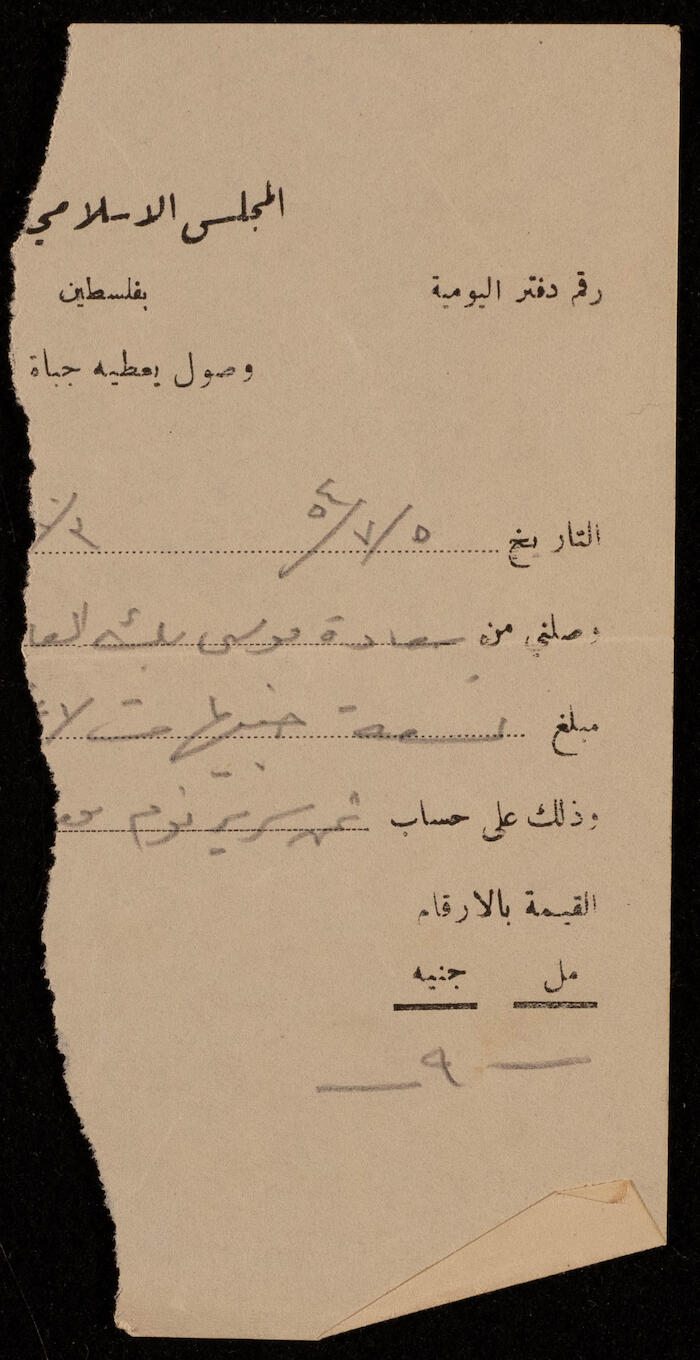 المجلس الاسلامي
رقم دفتر اليومية
بفلسطين
وصول يعطيه جباة
التاريخ ٥/٧/٥٤
وصلني من سعادة موسى بك
مبلغ تسعة جنيهات
وذلك على حساب ثمن سرير نوم
القيمة بالارقام
مل جنيه
— ٩ —